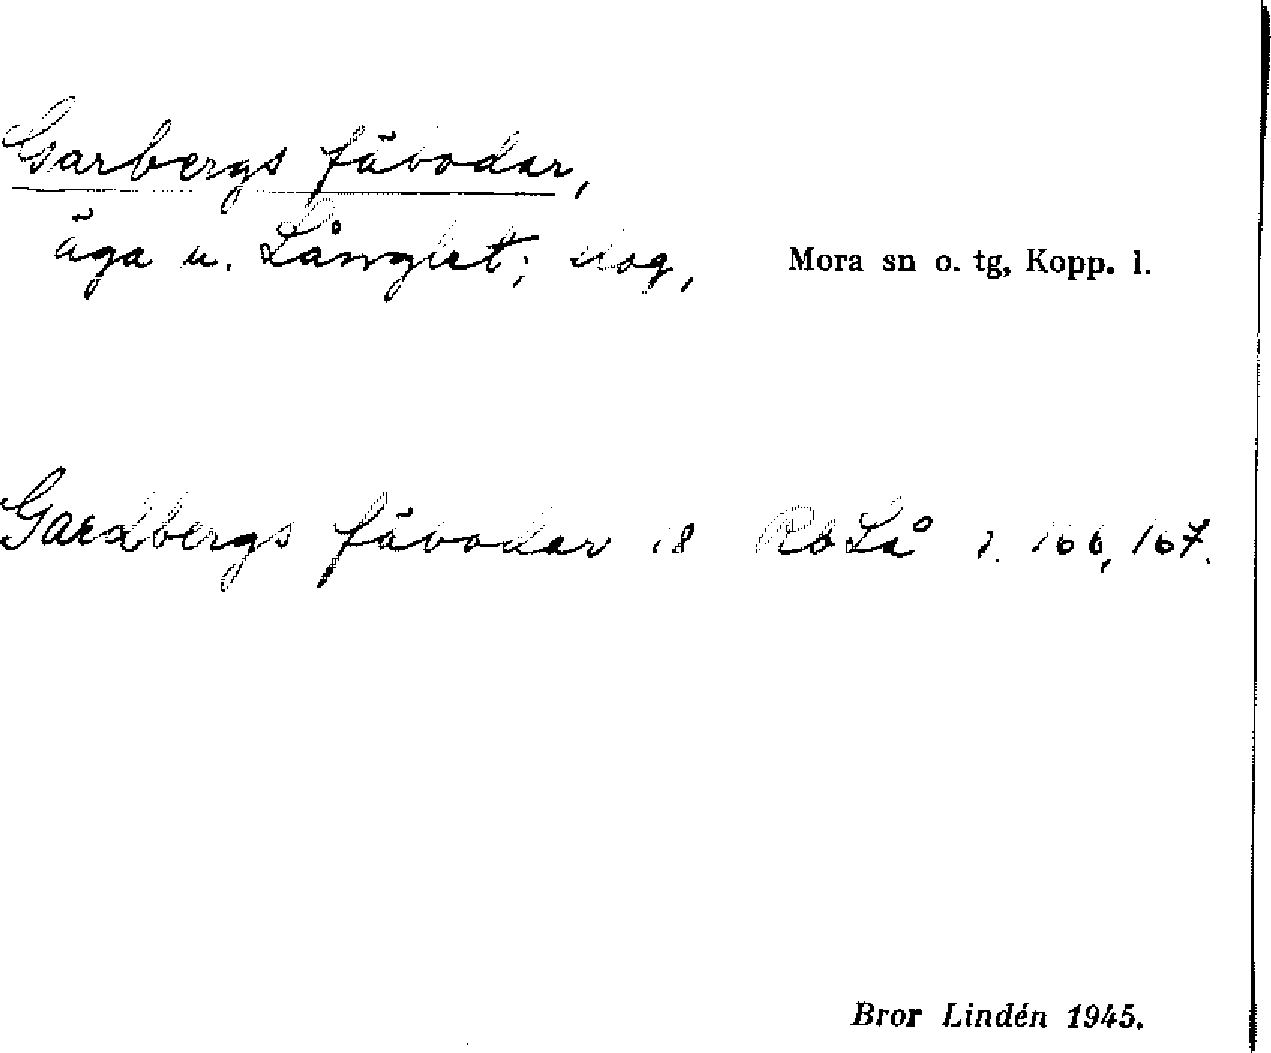 Garbergs fäbodar,
äga u. Långlet; skog, Mora sn o. tg, Kopp. l.
Gardbergs fäbodar 18 RbLå 1. 166, 167.
Bror Lindén 1945.